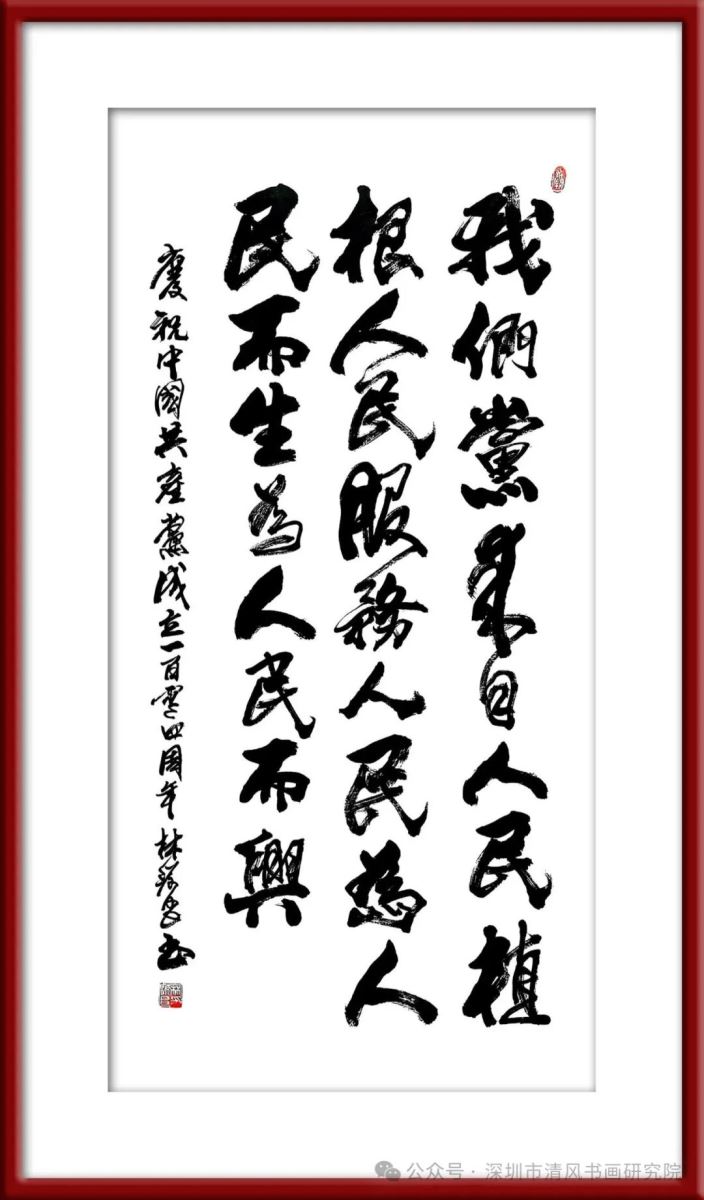 我們黨来自人民植
根人民服務人民為人
民而生為人民而興
慶祝中國共產黨成立一百零四周年 林 书
公众号 · 深圳市清风书画研究院